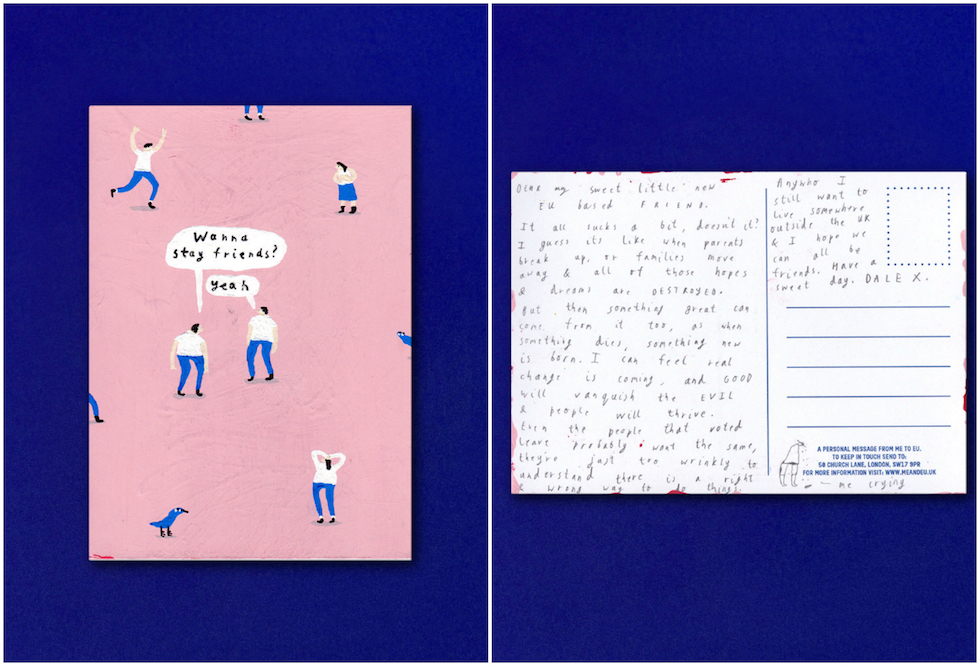 Wanna
stay friends?
yeah
DEAR my sweet little new
EU based FRIEND.
It all sucks a bit, doesn't it?
I guess its like when parents
break up, or families move
away & all of those hopes
& dreams are DESTROYED.
But then something great can
come from it too, as when
something dies, something new
is born. I can feel real
change is coming, and GOOD
will vanquish the EVIL
& people will thrive.
Even the people that voted
leave probably want the same,
they're just too wrinkly to
understand there is a right
& wrong way to do things.
Anywho I
still want to
live somewhere
outside the UK
& I hope we
can all be
friends. Have a
sweet day. DALE X.
A PERSONAL MESSAGE FROM ME TO EU.
TO KEEP IN TOUCH SEND TO:
50 CHURCH LANE, LONDON, SW17 9PR
FOR MORE INFORMATION VISIT: WWW.MEANDEU.UK
me crying